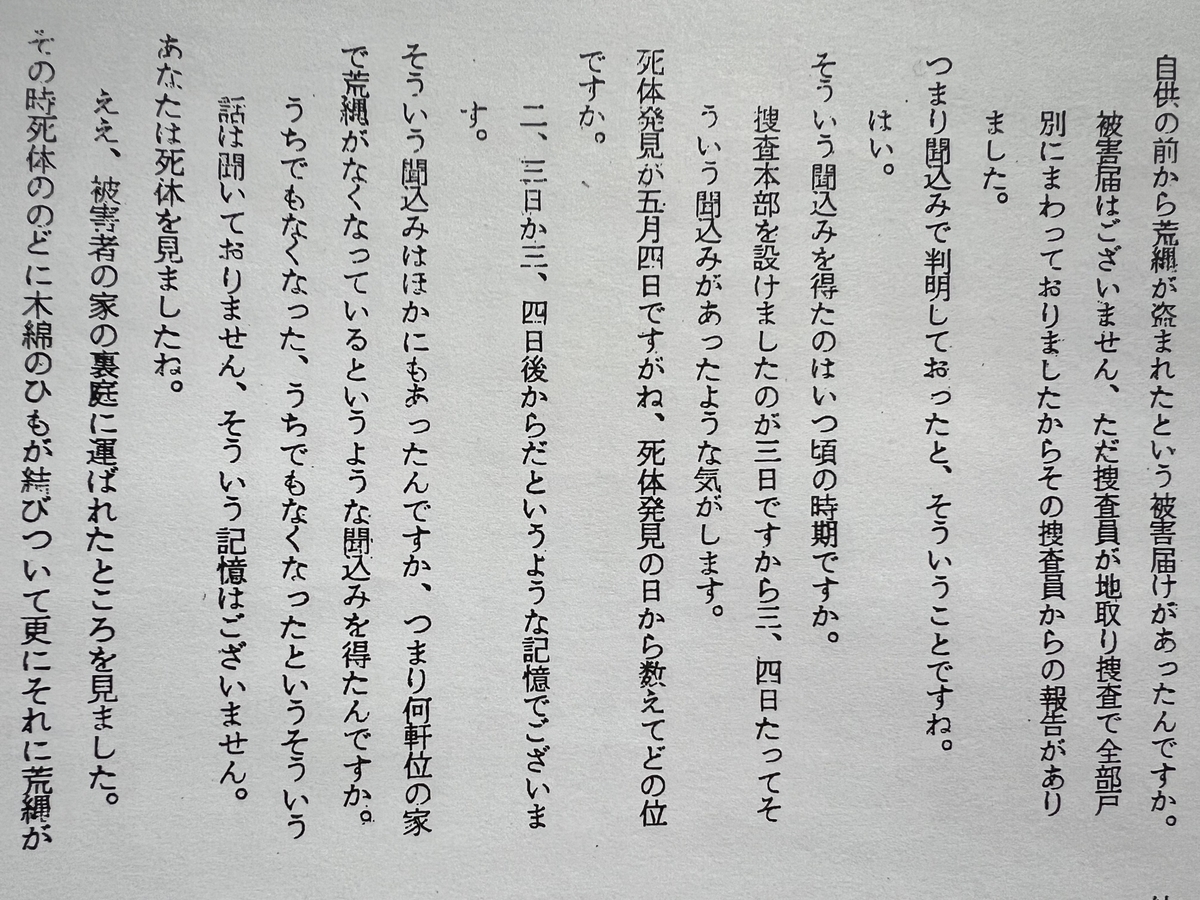 自供の前から荒縄が盗まれたという被害届けがあったんですか。
被害届はございません、ただ捜査員が地取り捜査で全部戸
別にまわっておりましたからその捜査員からの報告があり
ました。
つまり聞込みで判明しておったと、そういうことですね。
はい。
そういう聞込みを得たのはいつ頃の時期ですか。
捜査本部を設けましたのが三日ですから三、四日たってそ
ういう聞込みがあったような気がします。
死体発見が五月四日ですがね、死体発見の日から数えてどの位
ですか。
二、三日か三、四日後からだというような記憶でございま
す。
そういう聞込みはほかにもあったんですか、つまり何軒位の家
で荒縄がなくなっているというような聞込みを得たんですか。
うちでもなくなった、うちでもなくなったというそういう
話は聞いておりません、そういう記憶はございません。
あなたは死体を見ましたね。
ええ、被害者の家の裏庭に運ばれたところを見ました。
その時死体ののどに木綿のひもが結びついて更にそれに荒縄が